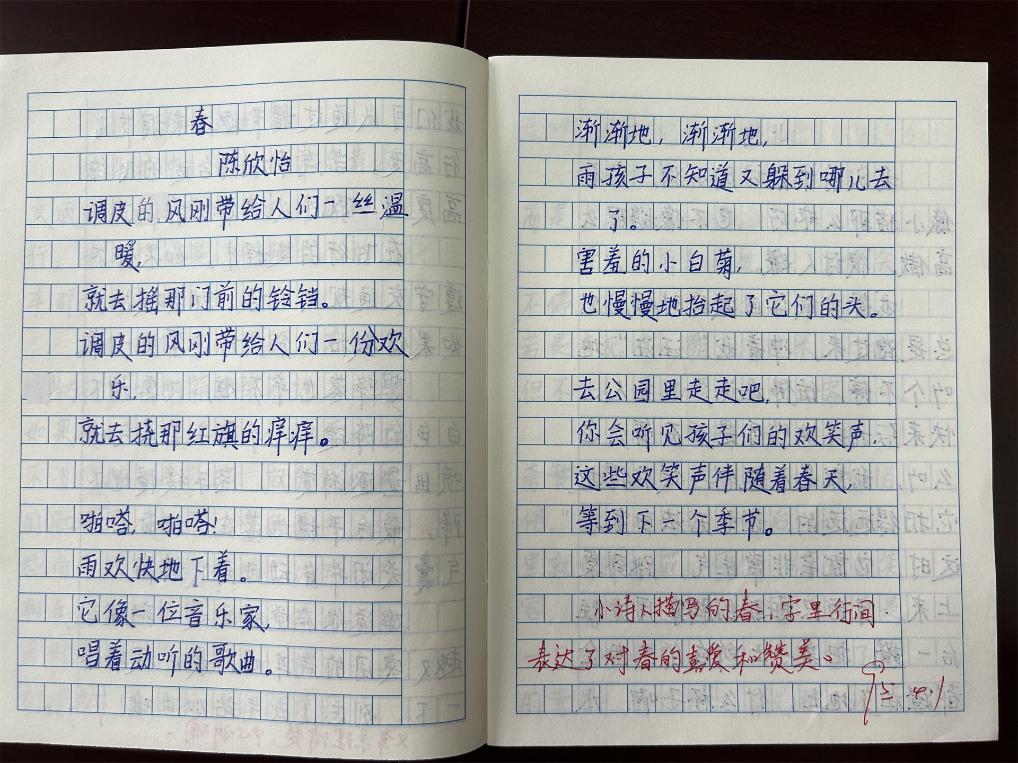 春
陈欣怡
调皮的风刚带给人们一丝温
暖,
就去摇那门前的铃铛。
调皮的风刚带给人们一份欢
乐,
就去挠那红旗的痒痒。
啪嗒,啪嗒!
雨欢快地下着。
它像一位音乐家,
唱着动听的歌曲。
渐渐地,渐渐地,
雨孩子不知道又躲到哪儿去
了。
害羞的小白菊,
也慢慢地抬起了它们的头。
去公园里走走吧,
你会听见孩子们的欢笑声,
这些欢笑声伴随着春天,
等到下一个季节。
小诗人描写的春,字里行间
表达了对春的喜爱和赞美。
4.1